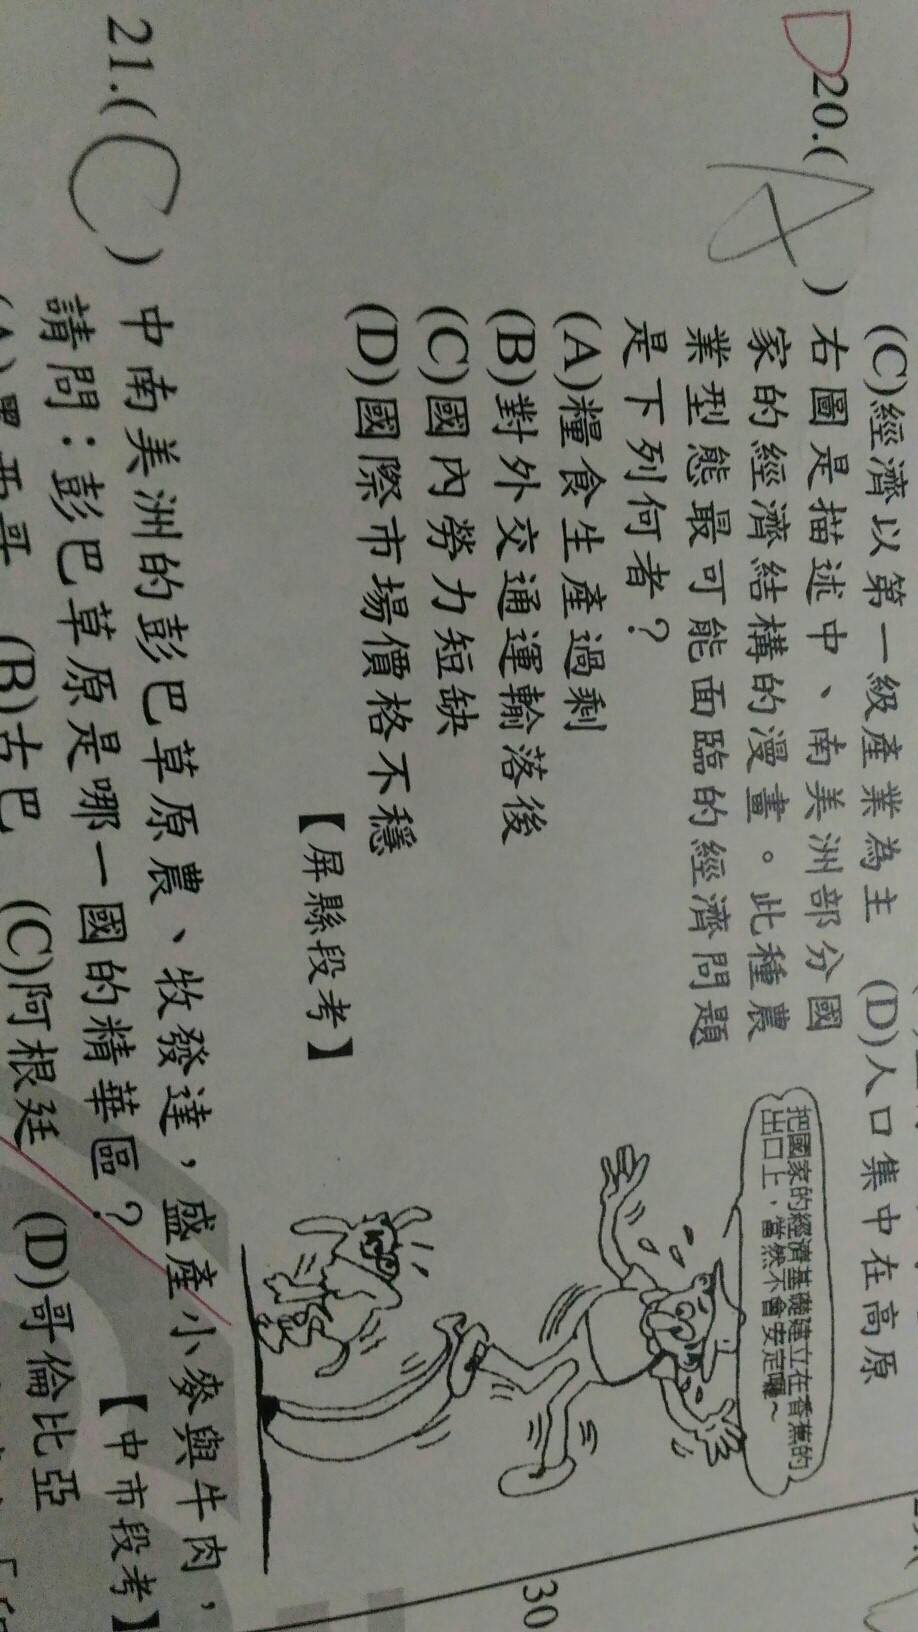 (C)經濟以第一級產業為主 (D)人口集中在高原
D
20.( A )右圖是描述中、南美洲部分國
家的經濟結構的漫畫。此種農
業型態最可能面臨的經濟問題
是下列何者？
(A)糧食生產過剩
(B)對外交通運輸落後
(C)國內勞力短缺
(D)國際市場價格不穩
【屏縣段考】
把國家的經濟基礎建立在香蕉的
出口上，當然不會安定囉～
21.( C )中南美洲的彭巴草原農、牧發達，盛產小麥與牛肉，
請問：彭巴草原是哪一國的精華區？ 【中市段考】
(A)墨西哥 (B)古巴 (C)阿根廷 (D)哥倫比亞
30